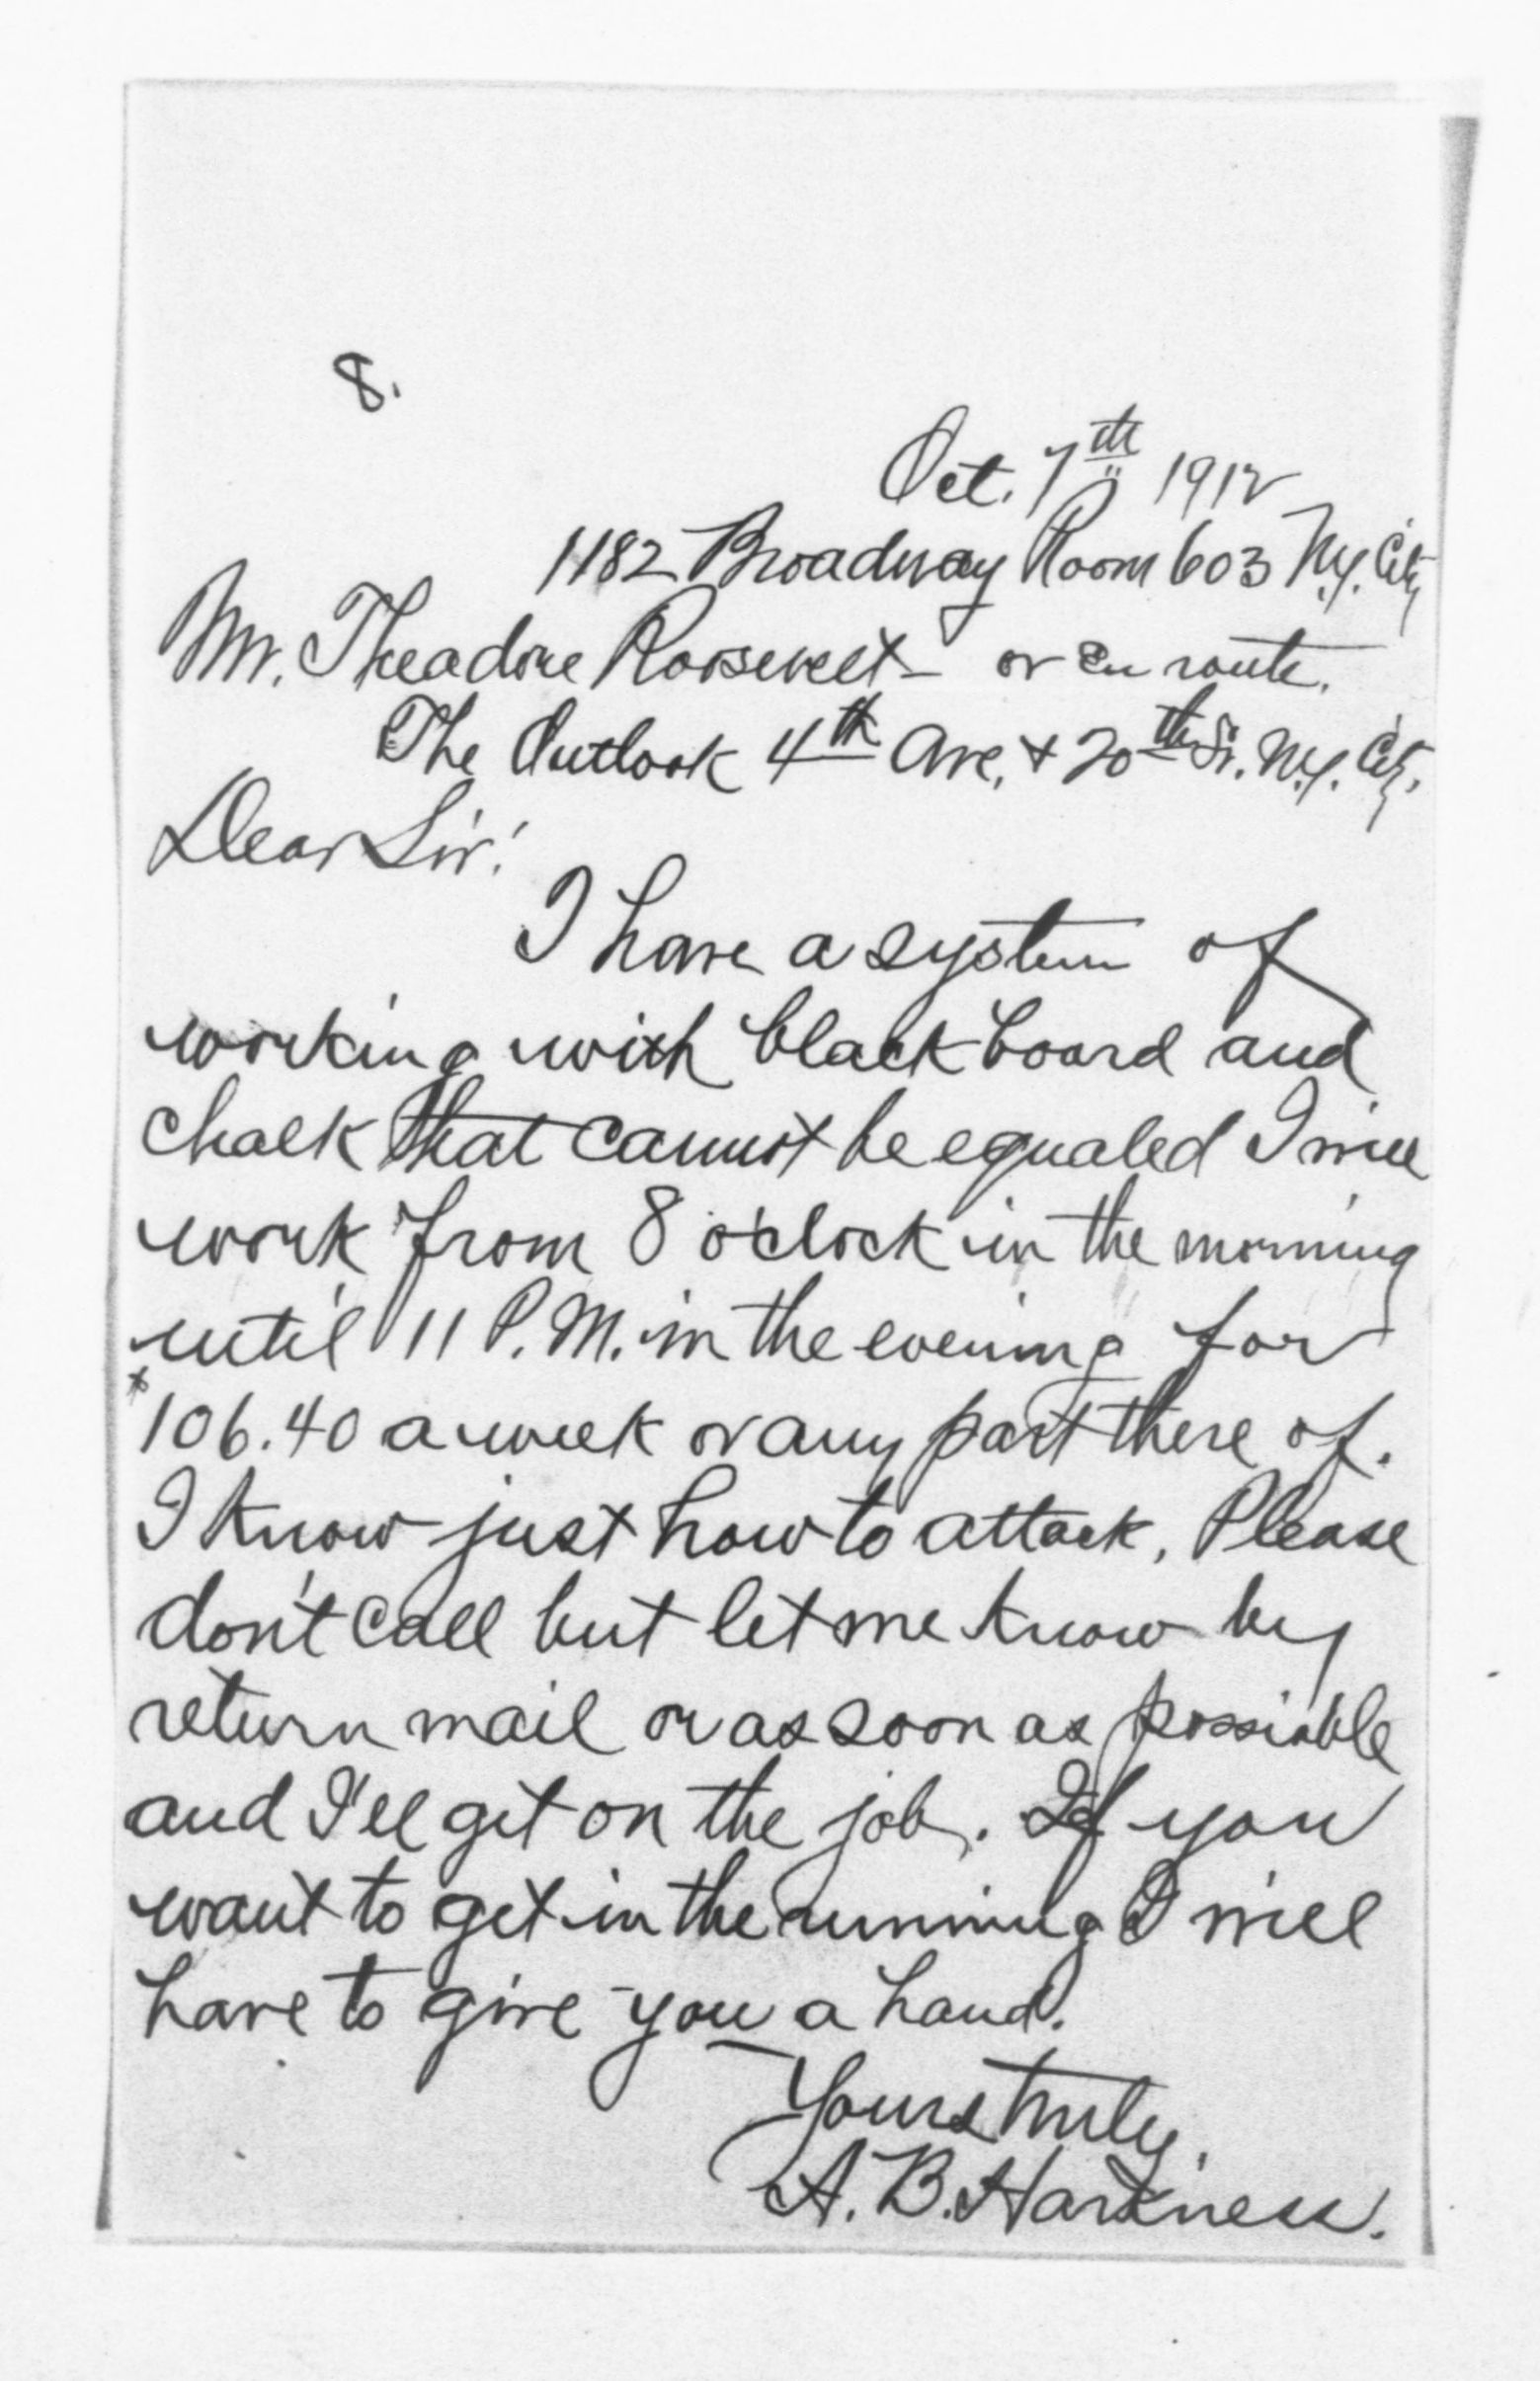 8.
Oct. 7th 1912
1182 Broadway Room 603 N.y. City
Mr. Theadore Roosevelt - or en route.
The Outlook 4th Ave. + 20th St. N.y. City.
Dear Sir!
I have a system of
working with black board and
chalk that cannot be equaled I will
work from 8 o'clock in the morning
until 11 P.M. in the evening for
$106.40 a week or any part there of.
I know just how to attack, Please
don't call but let me know by
return mail or as soon as possiable
and I'll get on the job. If you
want to get in the running I will
have to give you a hand.
Yours truly,
A. B. Harkness.